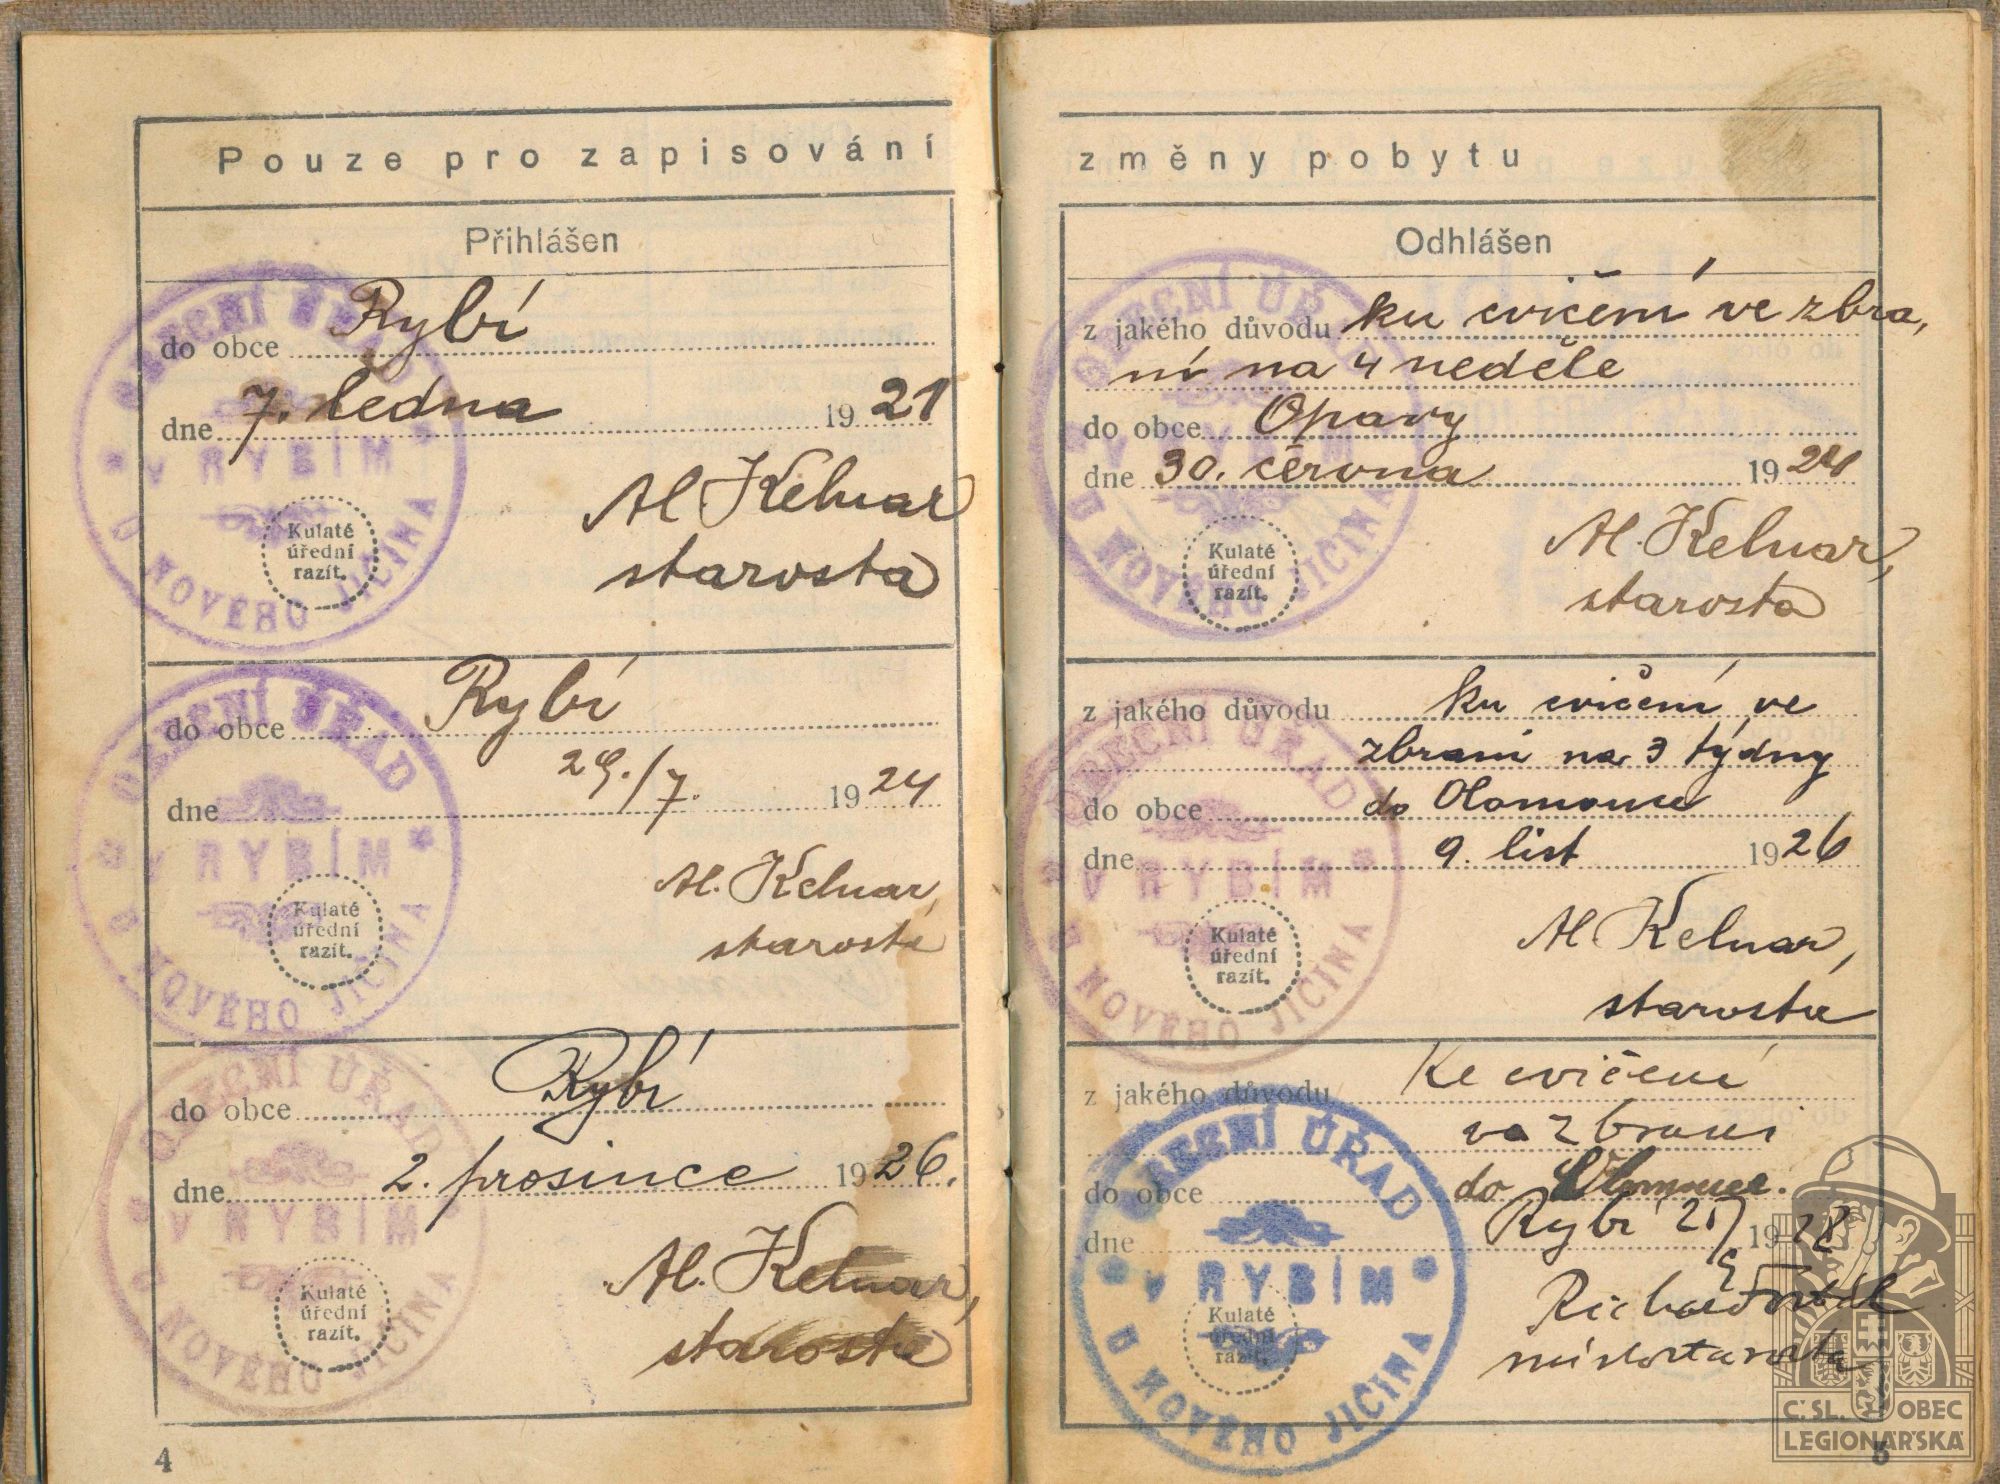 Pouze pro zapisování
Přihlášen
do obce Rybí
dne 7. ledna 1921
Al Kelnar
starosta
Kulaté
úřední
razít.
OBECNÍ ÚŘAD
V RYBÍM
U NOVÉHO JIČÍNA
do obce Rybí
dne 29./7. 1924
Al. Kelnar,
starosta
Kulaté
úřední
razít.
OBECNÍ ÚŘAD
V RYBÍM
U NOVÉHO JIČÍNA
do obce Rybí
dne 2. prosince 1926.
Al. Kelnar,
starosta
Kulaté
úřední
razít.
OBECNÍ ÚŘAD
V RYBÍM
U NOVÉHO JIČÍNA
4
změny pobytu
Odhlášen
z jakého důvodu ku cvičení ve zbra,
ní na 4 neděle
do obce Opavy
dne 30. června 1924
Al. Kelnar,
starosta
Kulaté
úřední
razít.
OBECNÍ ÚŘAD
V RYBÍM
U NOVÉHO JIČÍNA
z jakého důvodu ku cvičení ve
zbrani na 3 týdny
do obce do Olomouce
dne 9. list 1926
Al Kelnar,
starosta
Kulaté
úřední
razít.
OBECNÍ ÚŘAD
V RYBÍM
U NOVÉHO JIČÍNA
z jakého důvodu Ke cvičení
ve zbrani
do obce do Olomouce.
dne Rybí 19
Richard
místostarosta
Kulaté
úřední
razít.
OBECNÍ ÚŘAD
V RYBÍM
U NOVÉHO JIČÍNA
5
Č.SL. OBEC
LEGIONÁŘSKÁ